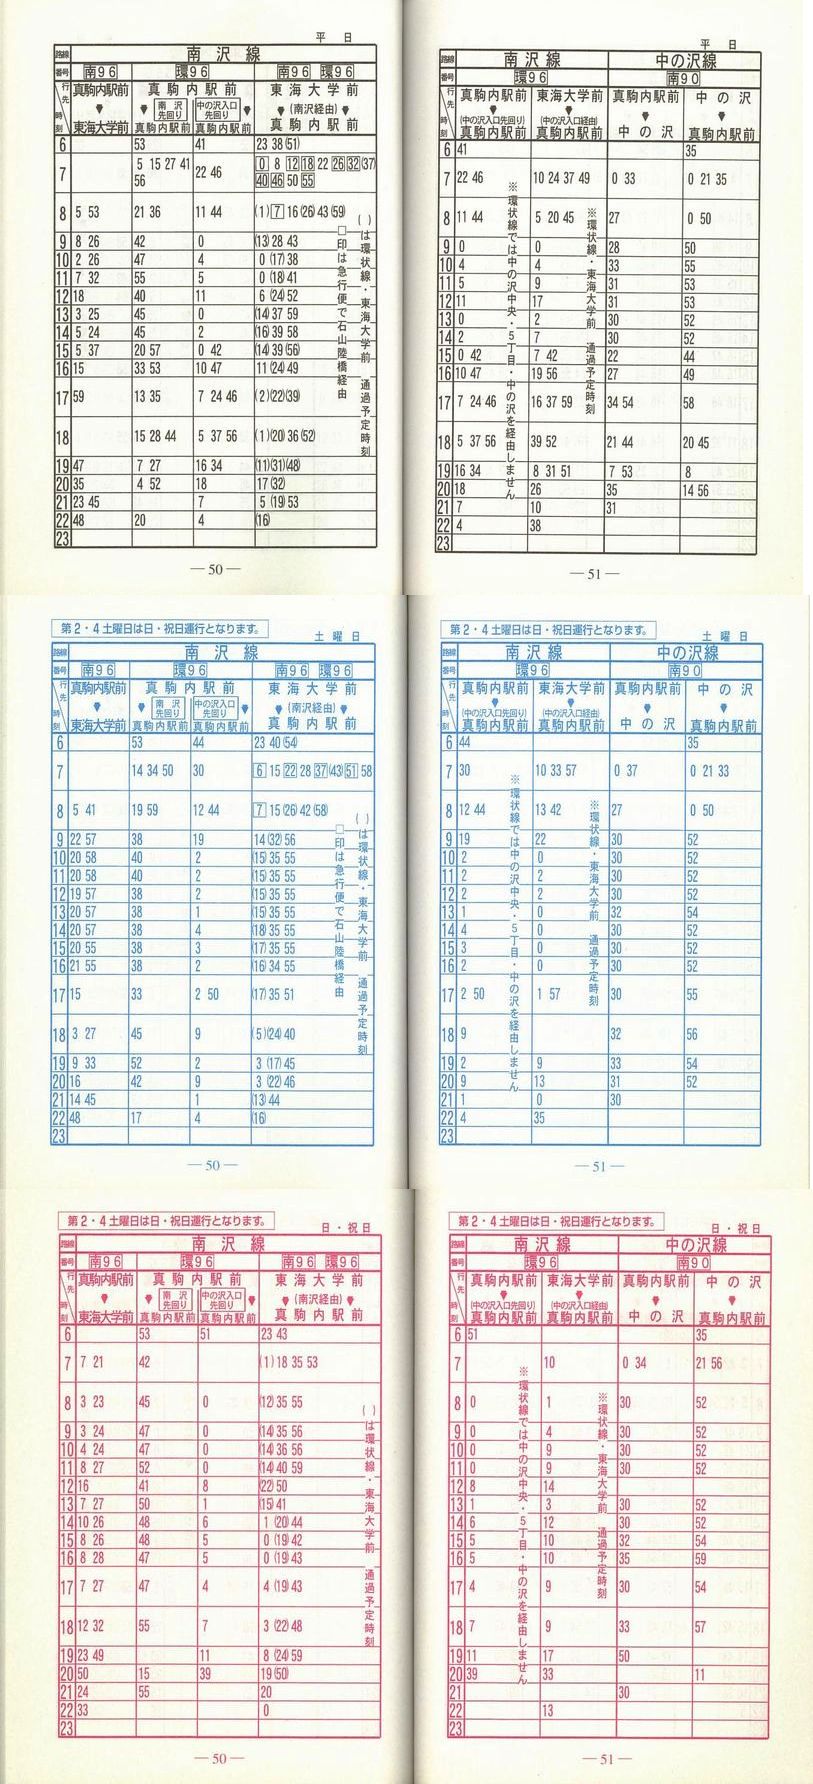 平 日
路線 南 沢 線
番号 南96 環96 南96 環96
行先 時刻 真駒内駅前 ▼ 東海大学前 真駒内駅前 ▼ 南沢先回り 真駒内駅前 中の沢入口先回り ▼ 真駒内駅前 東海大学前 ▼ (南沢経由) ▼ 真駒内駅前
6 53 41 23 38 (51)
7 5 15 27 41 56 22 46 0 8 12 18 22 26 32 (37) 40 46 50 55
8 5 53 21 36 11 44 (1) 7 16 (26) 43 (59)
9 8 26 42 0 (13) 28 43
10 2 26 47 4 0 (17) 38
11 7 32 55 5 0 (18) 41
12 18 40 11 6 (24) 52
13 3 25 45 0 (14) 37 59
14 5 24 45 2 (16) 39 58
15 5 37 20 57 0 42 (14) 39 (56)
16 15 33 53 10 47 11 (24) 49
17 59 13 35 7 24 46 (2) (22) (39)
18 15 28 44 5 37 56 (1) (20) 36 (52)
19 47 7 27 16 34 (11) (31) (48)
20 35 4 52 18 17 (32)
21 23 45 7 5 (19) 53
22 48 20 4 (16)
23
□印は急行便で石山陸橋経由
( )は環状線・東海大学前 通過予定時刻
— 50 —
平 日
路線 南 沢 線 中の沢線
番号 環96 南90
行先 時刻 真駒内駅前 ▼ (中の沢入口先回り) 真駒内駅前 東海大学前 ▼ (中の沢入口経由) 真駒内駅前 真駒内駅前 ▼ 中の沢 中の沢 ▼ 真駒内駅前
6 41 35
7 22 46 10 24 37 49 0 33 0 21 35
8 11 44 5 20 45 27 0 50
9 0 0 28 50
10 4 4 33 55
11 5 9 31 53
12 11 17 31 53
13 0 2 30 52
14 2 7 30 52
15 0 42 7 42 22 44
16 10 47 19 56 27 49
17 7 24 46 16 37 59 34 54 58
18 5 37 56 39 52 21 44 20 45
19 16 34 8 31 51 7 53 8
20 18 26 35 14 56
21 7 10 31
22 4 38
23
※環状線では中の沢中央・5丁目・中の沢を経由しません
※環状線・東海大学前 通過予定時刻
— 51 —
第2・4土曜日は日・祝日運行となります。
土 曜 日
路線 南 沢 線
番号 南96 環96 南96 環96
行先 時刻 真駒内駅前 ▼ 東海大学前 真駒内駅前 ▼ 南沢先回り 真駒内駅前 中の沢入口先回り ▼ 真駒内駅前 東海大学前 ▼ (南沢経由) ▼ 真駒内駅前
6 53 44 23 40 (54)
7 14 34 50 30 6 15 22 28 37 (43) 51 58
8 5 41 19 59 12 44 7 15 (26) 42 (58)
9 22 57 38 19 14 (32) 56
10 20 58 40 2 (15) 35 55
11 20 58 40 2 (15) 35 55
12 19 57 38 2 (15) 35 55
13 20 57 38 1 (15) 35 55
14 20 57 38 4 (18) 35 55
15 20 55 38 3 (17) 35 55
16 21 55 38 2 (16) 34 55
17 15 33 2 50 (17) 35 51
18 3 27 45 9 (5) (24) 40
19 9 33 52 2 3 (17) 45
20 16 42 9 3 (22) 46
21 14 45 1 (13) 44
22 48 17 4 (16)
23
□印は急行便で石山陸橋経由
( )は環状線・東海大学前 通過予定時刻
— 50 —
第2・4土曜日は日・祝日運行となります。
土 曜 日
路線 南 沢 線 中の沢線
番号 環96 南90
行先 時刻 真駒内駅前 ▼ (中の沢入口先回り) 真駒内駅前 東海大学前 ▼ (中の沢入口経由) 真駒内駅前 真駒内駅前 ▼ 中の沢 中の沢 ▼ 真駒内駅前
6 44 35
7 30 10 33 57 0 37 0 21 33
8 12 44 13 42 27 0 50
9 19 22 30 52
10 2 0 30 52
11 2 2 30 52
12 2 2 30 52
13 1 0 32 54
14 4 0 30 52
15 3 0 30 52
16 2 0 30 52
17 2 50 1 57 30 55
18 9 32 56
19 2 9 33 54
20 9 13 31 52
21 1 0 30
22 4 35
23
※環状線では中の沢中央・5丁目・中の沢を経由しません
※環状線・東海大学前 通過予定時刻
— 51 —
第2・4土曜日は日・祝日運行となります。
日・祝日
路線 南 沢 線
番号 南96 環96 南96 環96
行先 時刻 真駒内駅前 ▼ 東海大学前 真駒内駅前 ▼ 南沢先回り 真駒内駅前 中の沢入口先回り ▼ 真駒内駅前 東海大学前 ▼ (南沢経由) ▼ 真駒内駅前
6 53 51 23 43
7 7 21 42 (1) 18 35 53
8 3 23 45 0 (12) 35 55
9 3 24 47 0 (14) 35 56
10 4 24 47 0 (14) 36 56
11 8 27 52 0 (14) 40 59
12 16 41 8 (22) 50
13 7 27 50 1 (15) 41
14 10 26 48 6 1 (20) 44
15 8 26 48 5 0 (19) 42
16 8 28 47 5 0 (19) 43
17 7 27 47 4 4 (19) 43
18 12 32 55 7 3 (22) 48
19 23 49 11 8 (24) 59
20 50 15 39 19 (50)
21 24 55 20
22 33 0
23
( )は環状線・東海大学前 通過予定時刻
— 50 —
第2・4土曜日は日・祝日運行となります。
日・祝日
路線 南 沢 線 中の沢線
番号 環96 南90
行先 時刻 真駒内駅前 ▼ (中の沢入口先回り) 真駒内駅前 東海大学前 ▼ (中の沢入口経由) 真駒内駅前 真駒内駅前 ▼ 中の沢 中の沢 ▼ 真駒内駅前
6 51 35
7 10 0 34 21 56
8 0 1 30 52
9 0 4 30 52
10 0 9 30 52
11 0 9 30 52
12 8 14
13 1 3 30 52
14 6 12 30 52
15 5 10 32 54
16 5 10 35 59
17 4 9 30 54
18 7 9 33 57
19 11 17 50
20 39 33 11
21 30
22 13
23
※環状線では中の沢中央・5丁目・中の沢を経由しません
※環状線・東海大学前 通過予定時刻
— 51 —